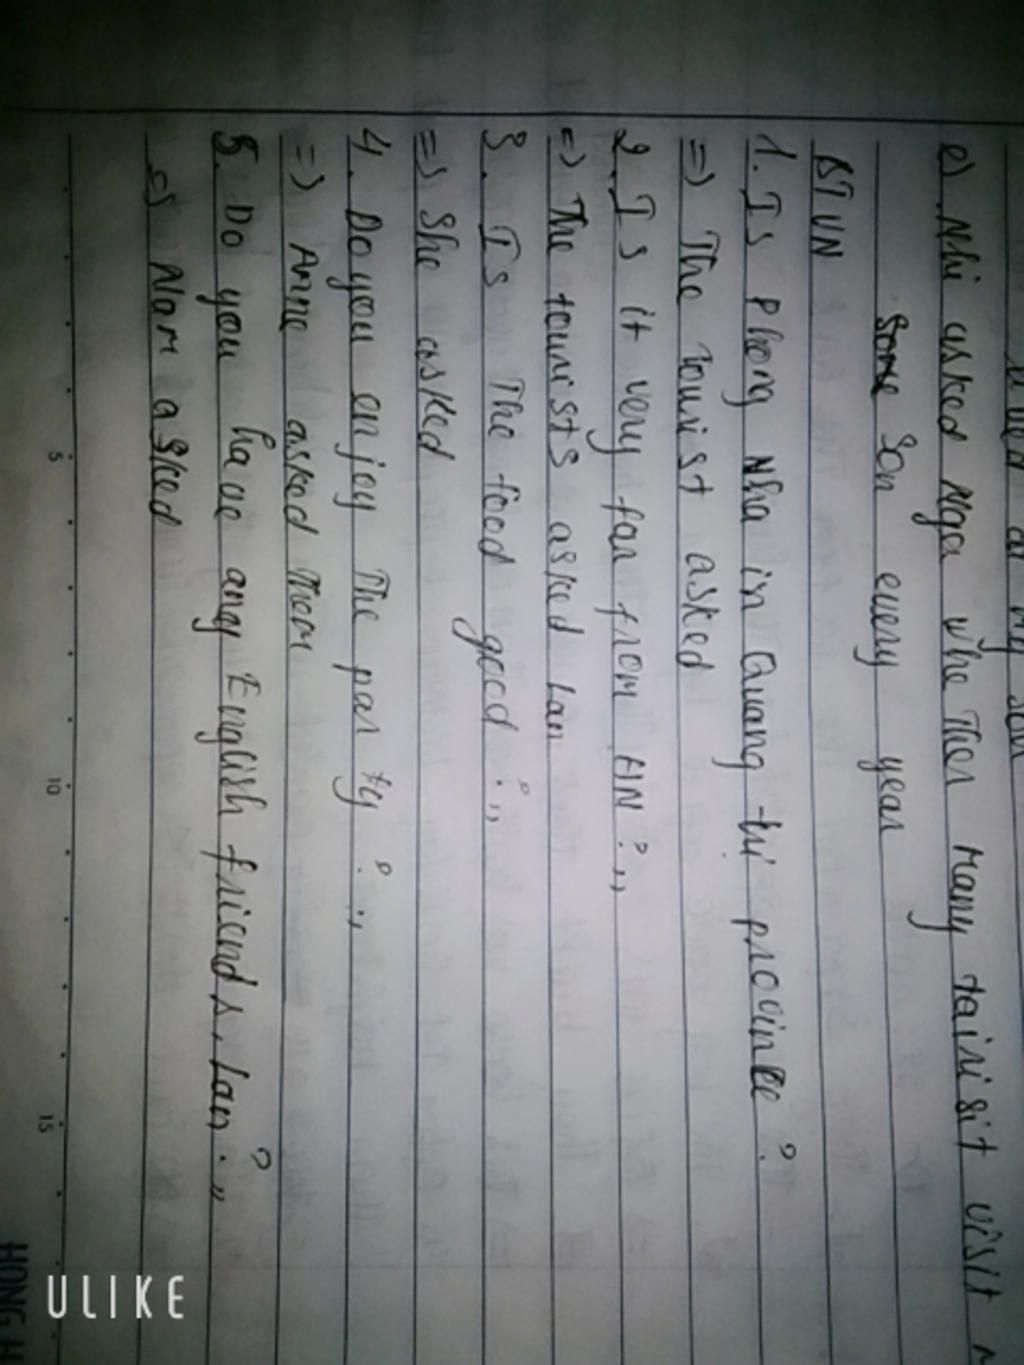 e) Nhi asked Nga whether many tairisit visit
Son every year
BTVN
1. Is Phong Nha in Quang tri province?
=) The tourist asked
2. Is it very far from HN?"
=) The tourists asked Lan
3. Is The food good?"
=) She asked
4. Do you enjoy The party?"
=) Anne asked them
5. Do you have any English friends, Lan?"
=) Nam asked
5
10
15
HONG H
ULIKE